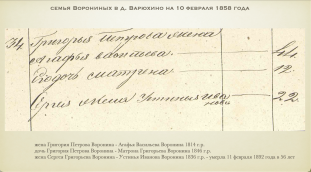 СЕМЬЯ ВОРОНИНЫХ В Д. ВАРЮХИНО НА 10 ФЕВРАЛЯ 1858 ГОДА
34 Григорья Петрова жена
Агафья Васильева 44
дочь Матрена 12
Сергея жена Устинья Ива
нова 22
жена Григория Петрова Воронина - Агафья Васильева Воронина 1814 г.р.
дочь Григория Петрова Воронина - Матрена Григорьева Воронина 1846 г.р.
жена Сергея Григорьева Воронина - Устинья Иванова Воронина 1836 г.р. - умерла 11 февраля 1892 года в 56 лет